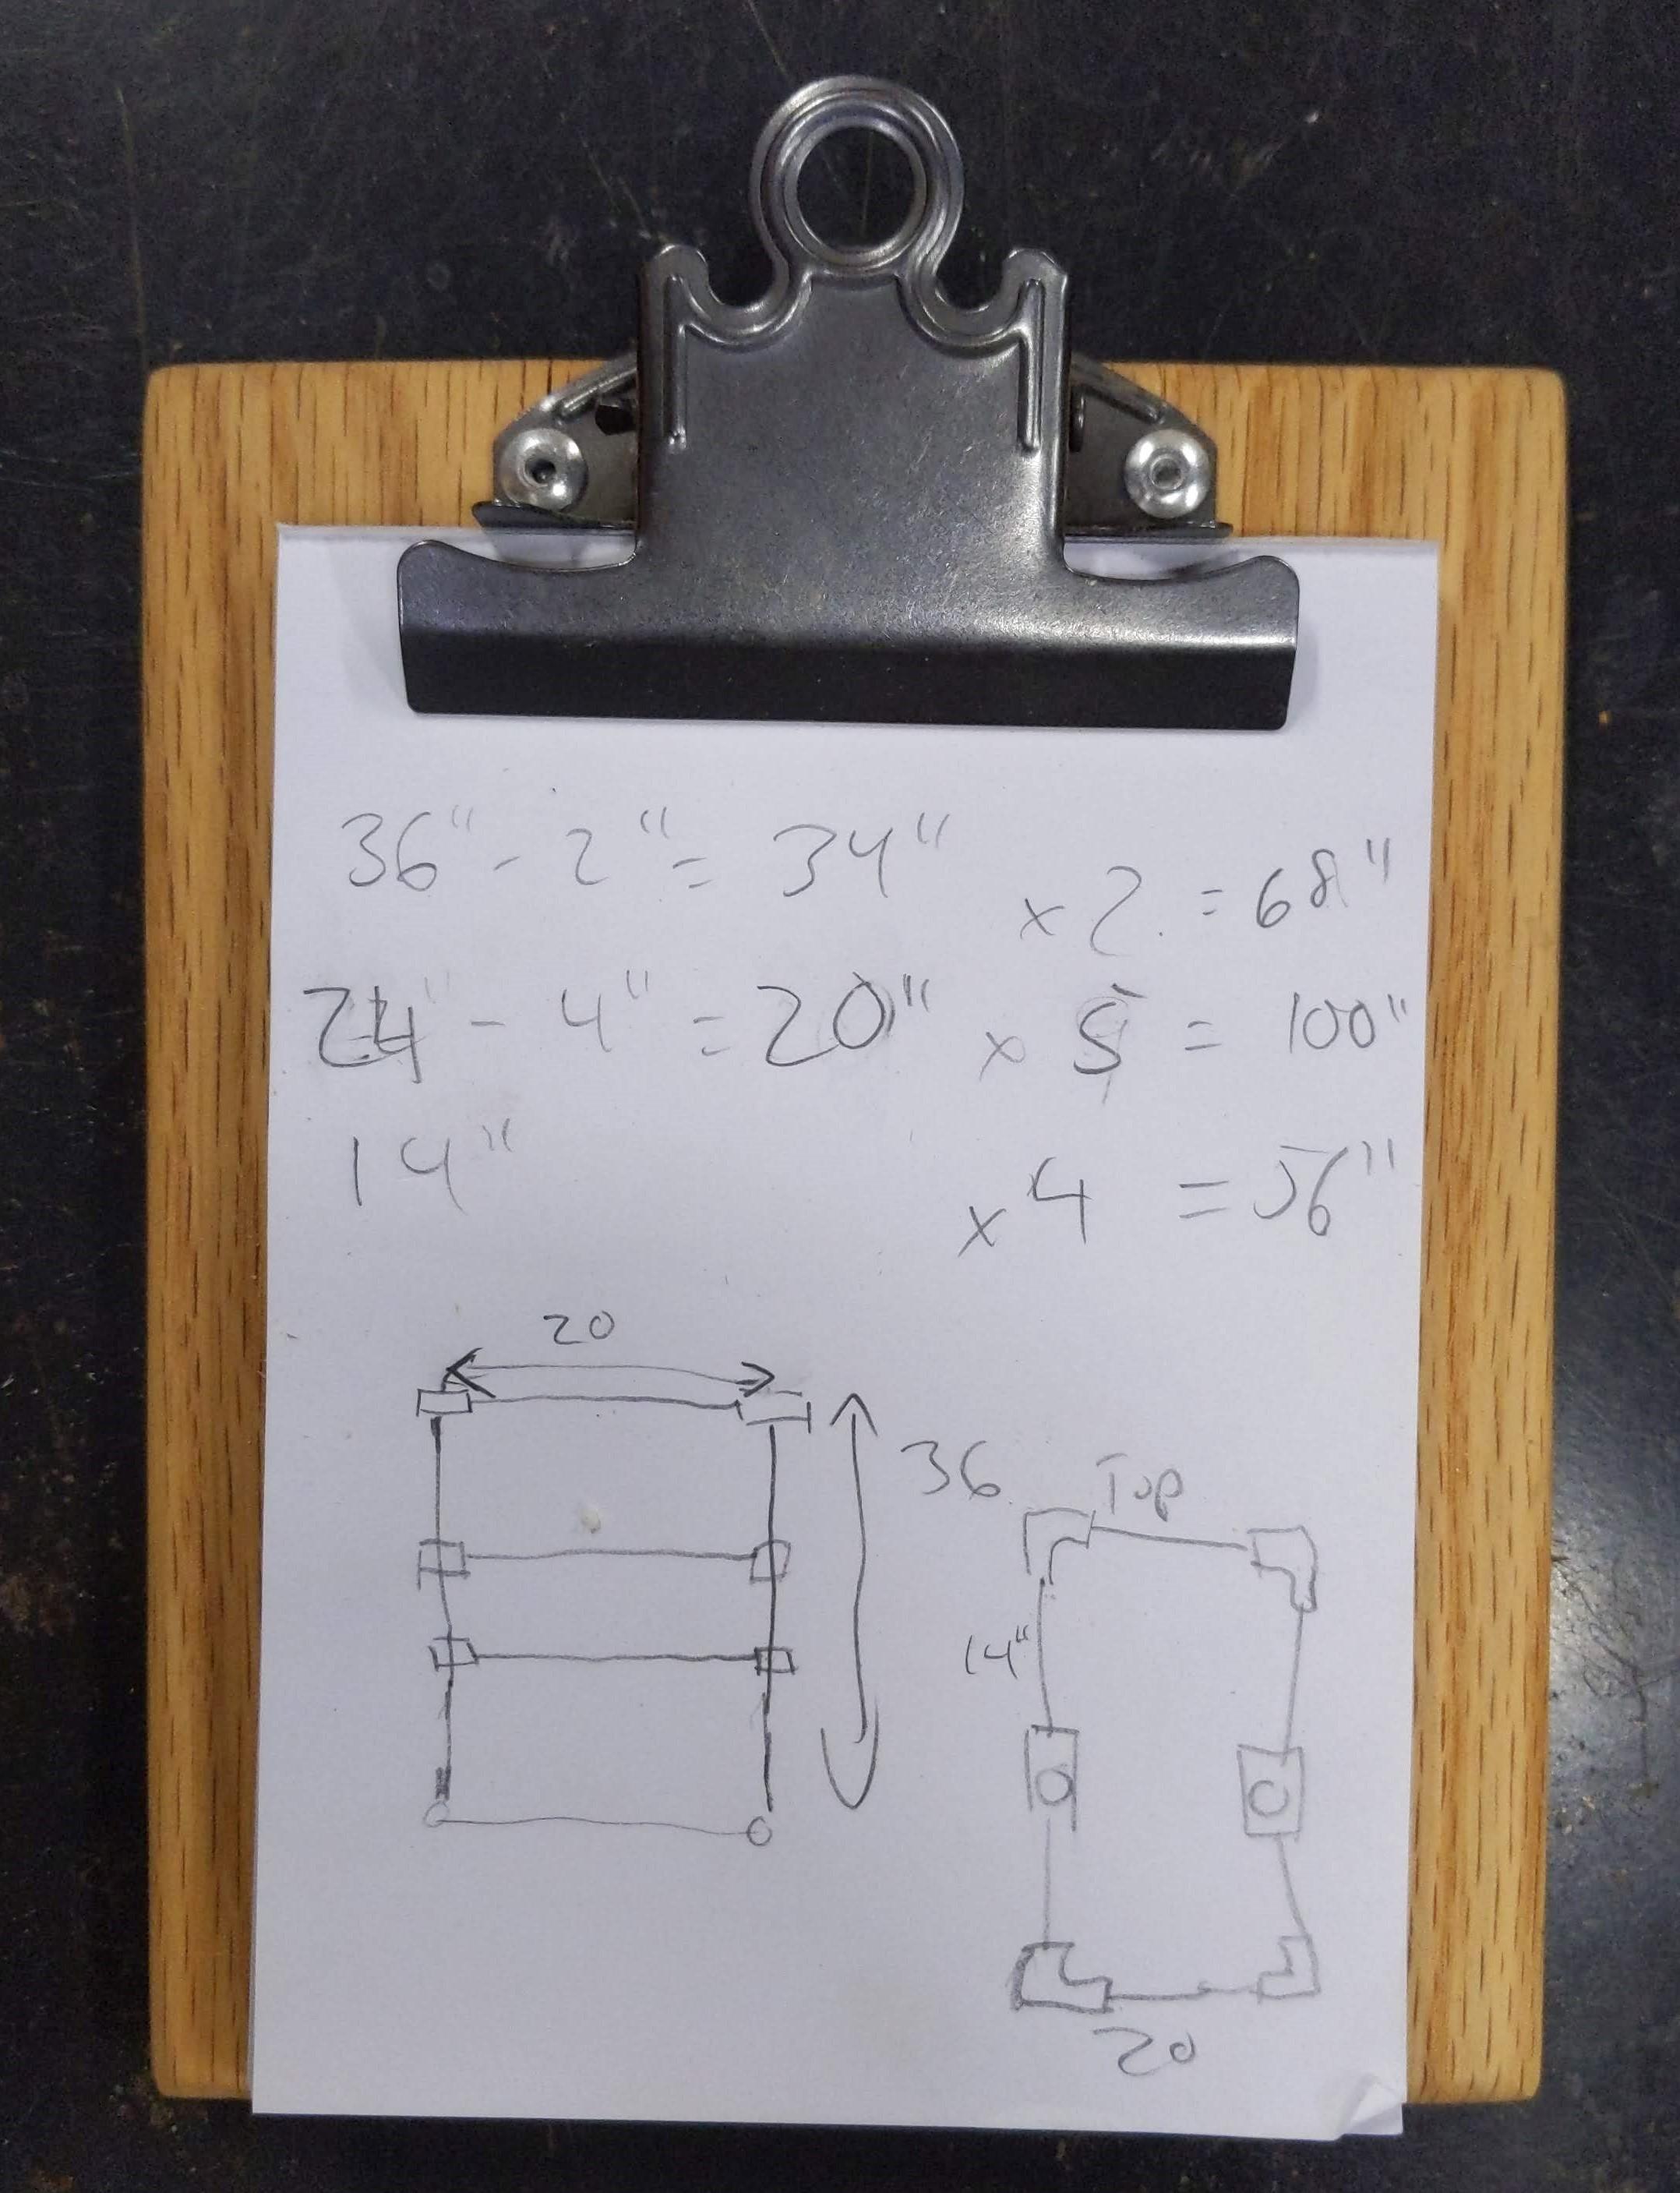 36" - 2" = 34" x 2 = 68"
24" - 4" = 20" x 5 = 100"
14" x 4 = 56"
20
36
Top
14"
20